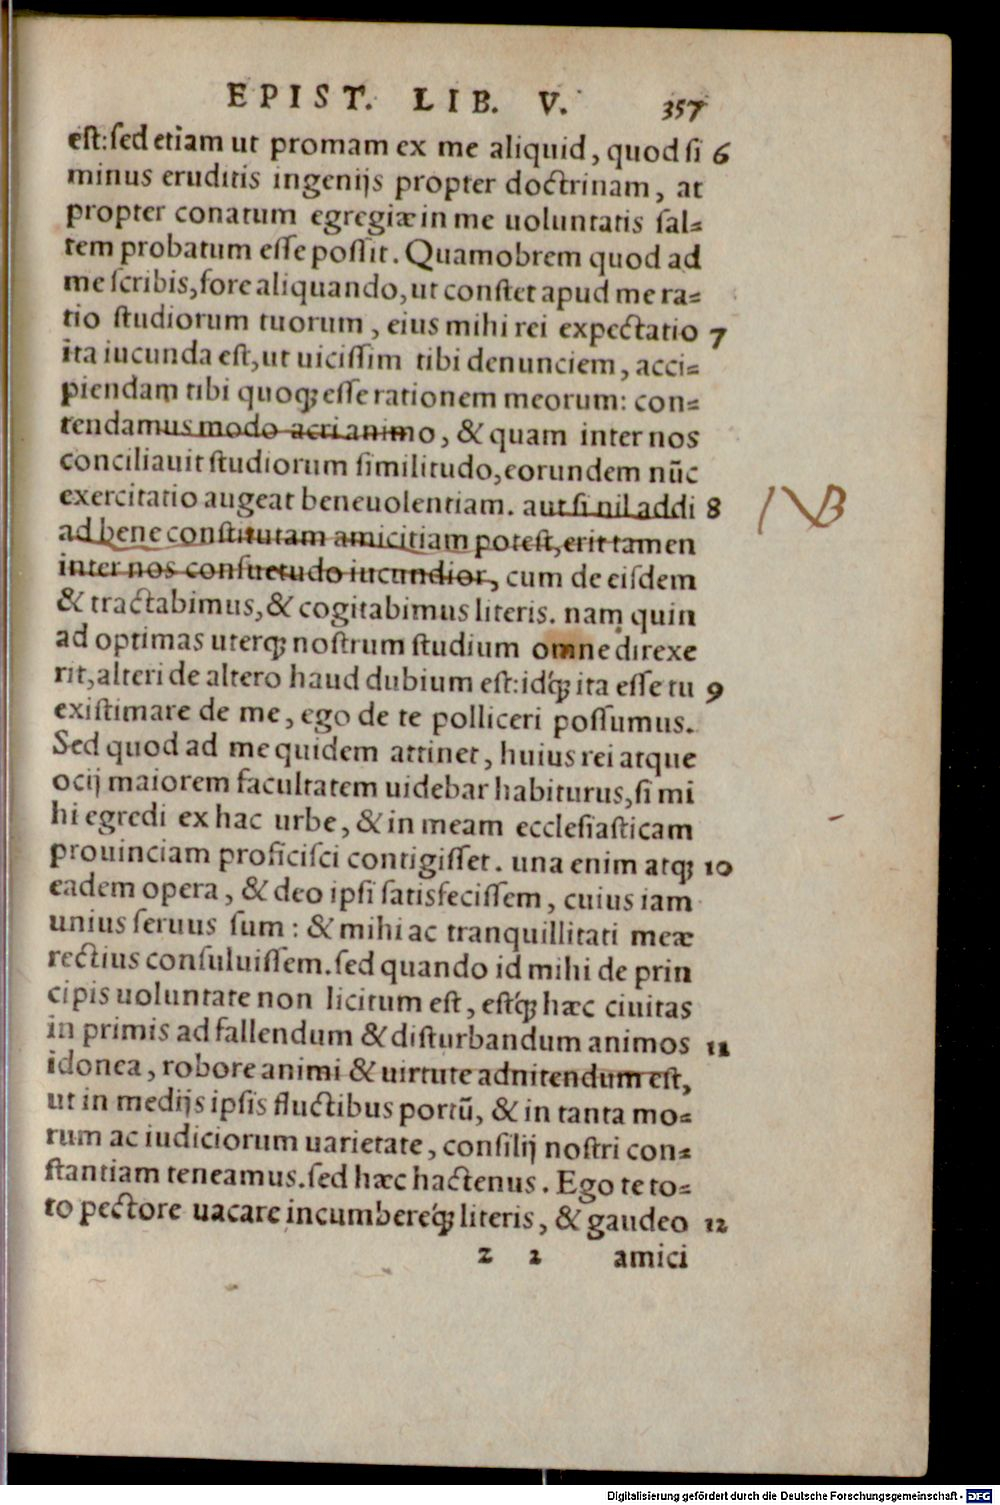 EPIST. LIB. V. 357
est:sed etiam ut promam ex me aliquid, quod si 6
minus eruditis ingenijs propter doctrinam, at
propter conatum egregiæ in me uoluntatis sal=
tem probatum esse possit. Quamobrem quod ad
me scribis, fore aliquando, ut constet apud me ra=
tio studiorum tuorum, eius mihi rei expectatio 7
ita iucunda est, ut uicissim tibi denunciem, acci=
piendam tibi quoq; esse rationem meorum: con=
tendamus modo acri animo, & quam inter nos
conciliauit studiorum similitudo, eorundem nūc
exercitatio augeat beneuolentiam. aut si nil addi 8
NB
ad bene constitutam amicitiam potest, erit tamen
inter nos consuetudo iucundior, cum de eisdem
& tractabimus, & cogitabimus literis. nam quin
ad optimas uterq; nostrum studium omne direxe
rit, alteri de altero haud dubium est: idq́; ita esse tu 9
existimare de me, ego de te polliceri possumus.
Sed quod ad me quidem attinet, huius rei atque
ocij maiorem facultatem uidebar habiturus, si mi
hi egredi ex hac urbe, & in meam ecclesiasticam
prouinciam proficisci contigisset. una enim atq; 10
eadem opera, & deo ipsi satisfecissem, cuius iam
unius seruus sum: & mihi ac tranquillitati meæ
rectius consuluissem. sed quando id mihi de prin
cipis uoluntate non licitum est, estq́; hæc ciuitas
in primis ad fallendum & disturbandum animos 11
idonea, robore animi & uirtute adnitendum est,
ut in medijs ipsis fluctibus portū, & in tanta mo=
rum ac iudiciorum uarietate, consilij nostri con=
stantiam teneamus. sed hæc hactenus. Ego te to=
to pectore uacare incumbereq́; literis, & gaudeo 12
z 2 amici
Digitalisierung gefördert durch die Deutsche Forschungsgemeinschaft - DFG